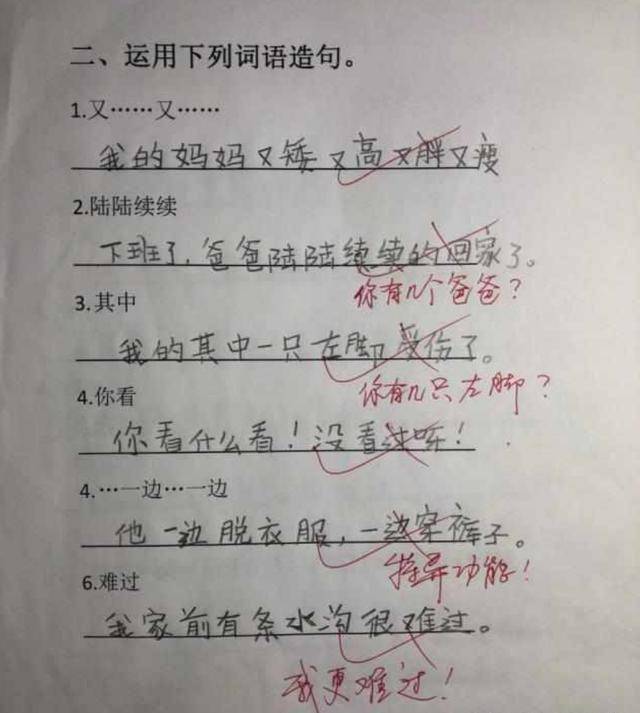 二、运用下列词语造句。
1.又……又……
我的妈妈又矮又高又胖又瘦
2.陆陆续续
下班了，爸爸陆陆续续的回家了。
你有几个爸爸？
3.其中
我的其中一只左脚受伤了。
你有几只左脚？
4.你看
你看什么看！没看过哧！
4.…一边…一边
他一边脱衣服，一边穿裤子。
特异功能！
6.难过
我家前有条水沟很难过。
我更难过！